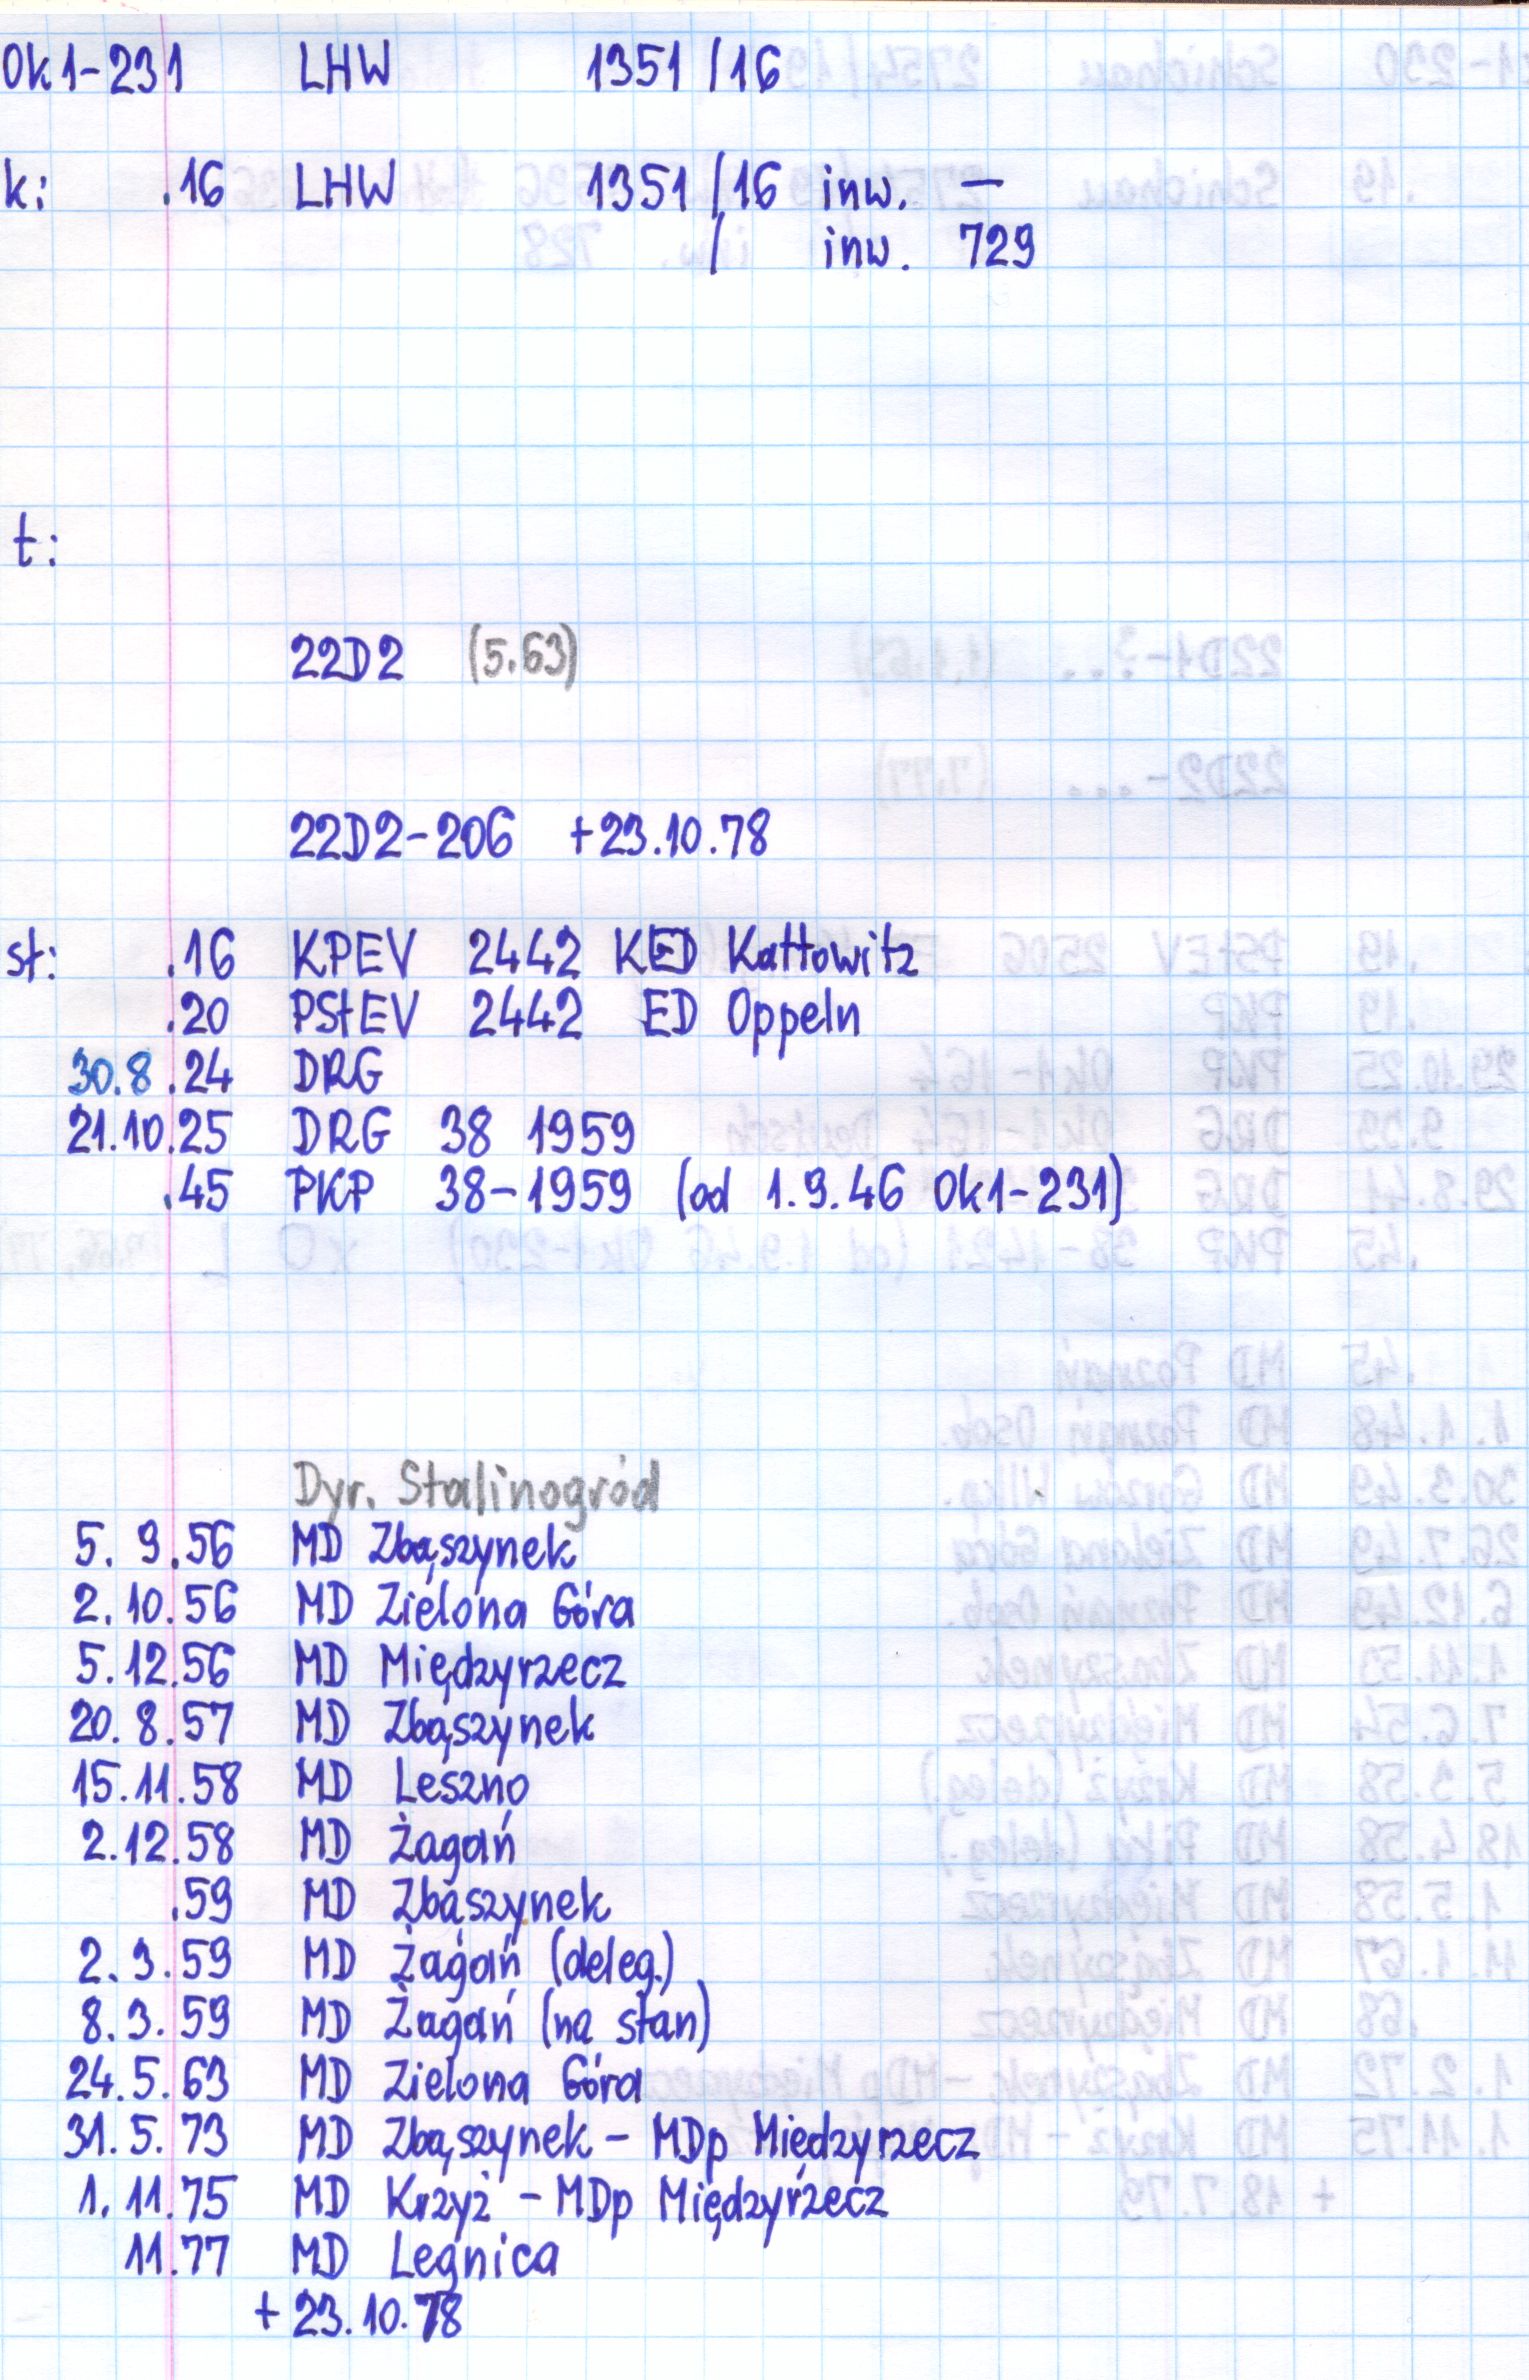 Ok1-231 LHW 1351/16
k: .16 LHW 1351/16 inw. —
/ inw. 729
t:
22D2 (5.63)
22D2-206 +23.10.78
st: .16 KPEV 2442 KED Kattowitz
.20 PStEV 2442 ED Oppeln
30.8.24 DRG
21.10.25 DRG 38 1959
.45 PKP 38-1959 (od 1.9.46 Ok1-231)
Dyr. Stalinogród
5.9.56 MD Zbąszynek
2.10.56 MD Zielona Góra
5.12.56 MD Międzyrzecz
20.8.57 MD Zbąszynek
15.11.58 MD Leszno
2.12.58 MD Żagań
.59 MD Zbąszynek
2.3.59 MD Żagań (deleg.)
8.3.59 MD Żagań (na stan)
24.5.63 MD Zielona Góra
31.5.73 MD Zbąszynek - MDp Międzyrzecz
1.11.75 MD Krzyż - MDp Międzyrzecz
11.77 MD Legnica
+ 23.10.78